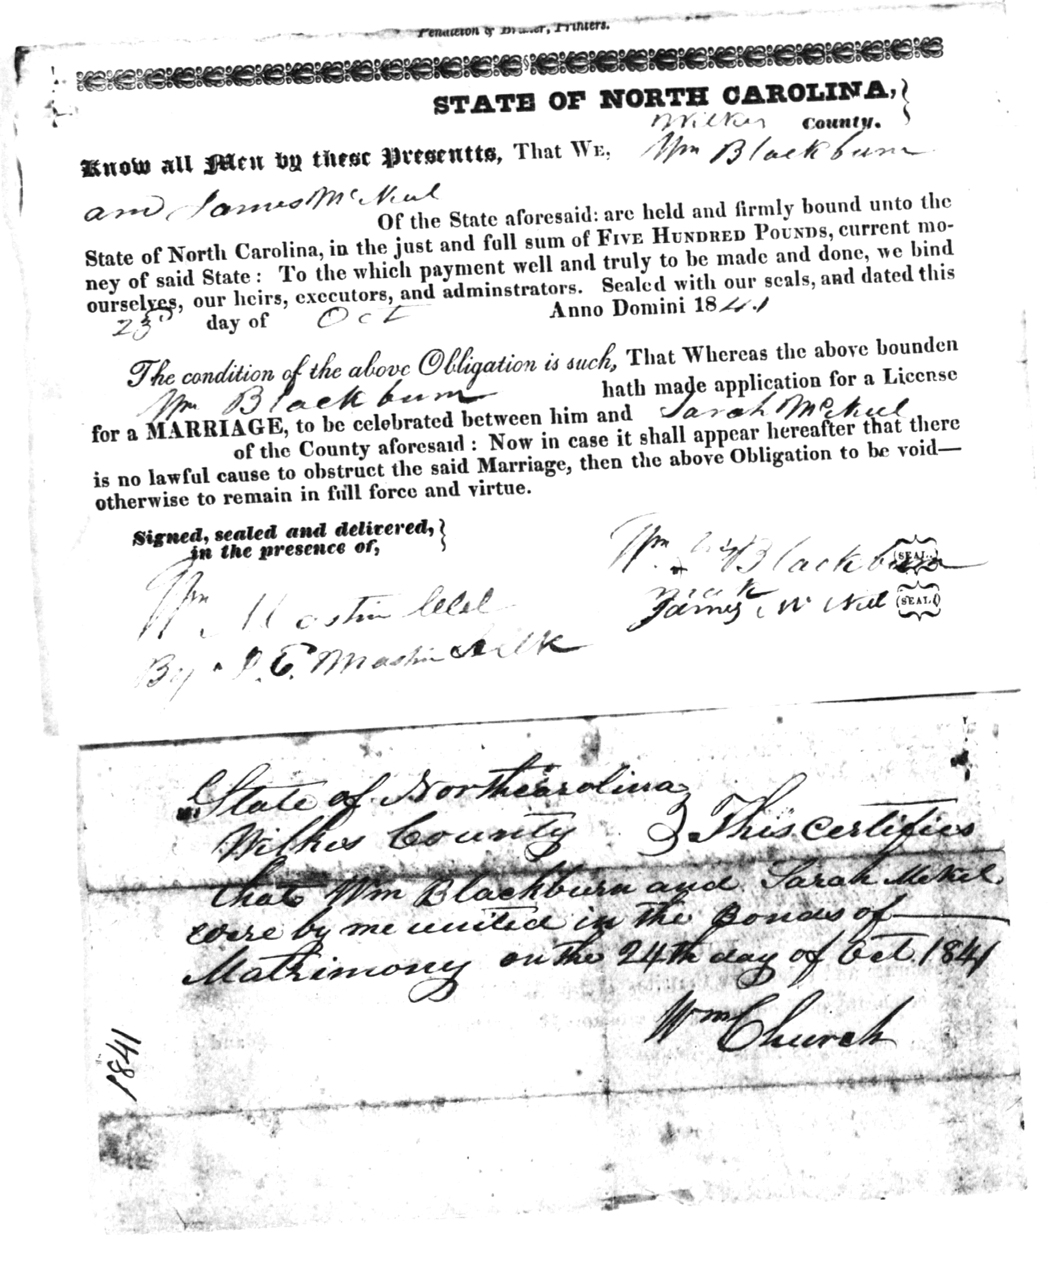 Pendleton & Bruner, Printers.
STATE OF NORTH CAROLINA,
Wilkes County.
Know all Men by these Presentts, That We, Wm Blackburn
and James McNeil
Of the State aforesaid: are held and firmly bound unto the
State of North Carolina, in the just and full sum of Five Hundred Pounds, current mo-
ney of said State: To the which payment well and truly to be made and done, we bind
ourselves, our heirs, executors, and adminstrators. Sealed with our seals, and dated this
23rd day of Oct Anno Domini 1841
The condition of the above Obligation is such, That Whereas the above bounden
Wm Blackburn hath made application for a License
for a MARRIAGE, to be celebrated between him and Sarah McNeil
of the County aforesaid: Now in case it shall appear hereafter that there
is no lawful cause to obstruct the said Marriage, then the above Obligation to be void—
otherwise to remain in full force and virtue.
Signed, sealed and delivered,
in the presence of,
Wm his Blackburn (SEAL.)
mark
James McNeil (SEAL.)
Wm Mastin Clk
By J. E. Mastin
State of North carolina
Wilkes County This certifies
that Wm Blackburn and Sarah McNeil
were by me united in the Bonds of
Matrimony on the 24th day of Oct 1841
Wm Church
1841